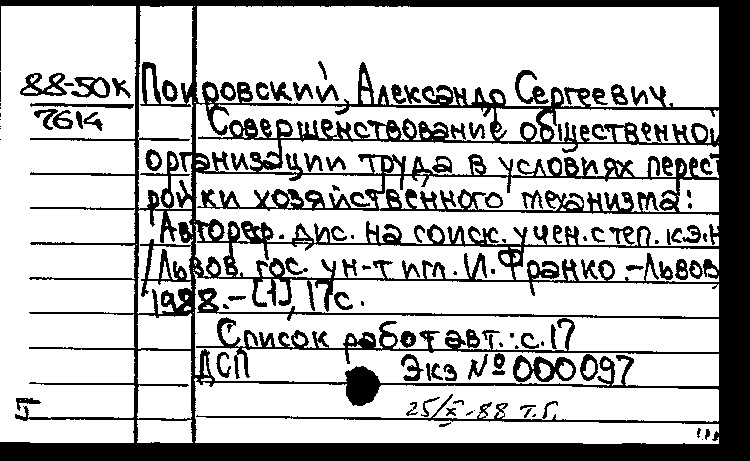 88-50к Покровский, Александр Сергеевич.
7614
Совершенствование общественной
организации труда в условиях перест
ройки хозяйственного механизма:
Автореф. дис. на соиск. учен. степ. к.э.н
/Львов. гос. ун-т им. И. Франко.-Львов
1988.-[1], 17с.
Список работ авт.: с.17
ДСП Экз № 000097
25/X-88 т.г.